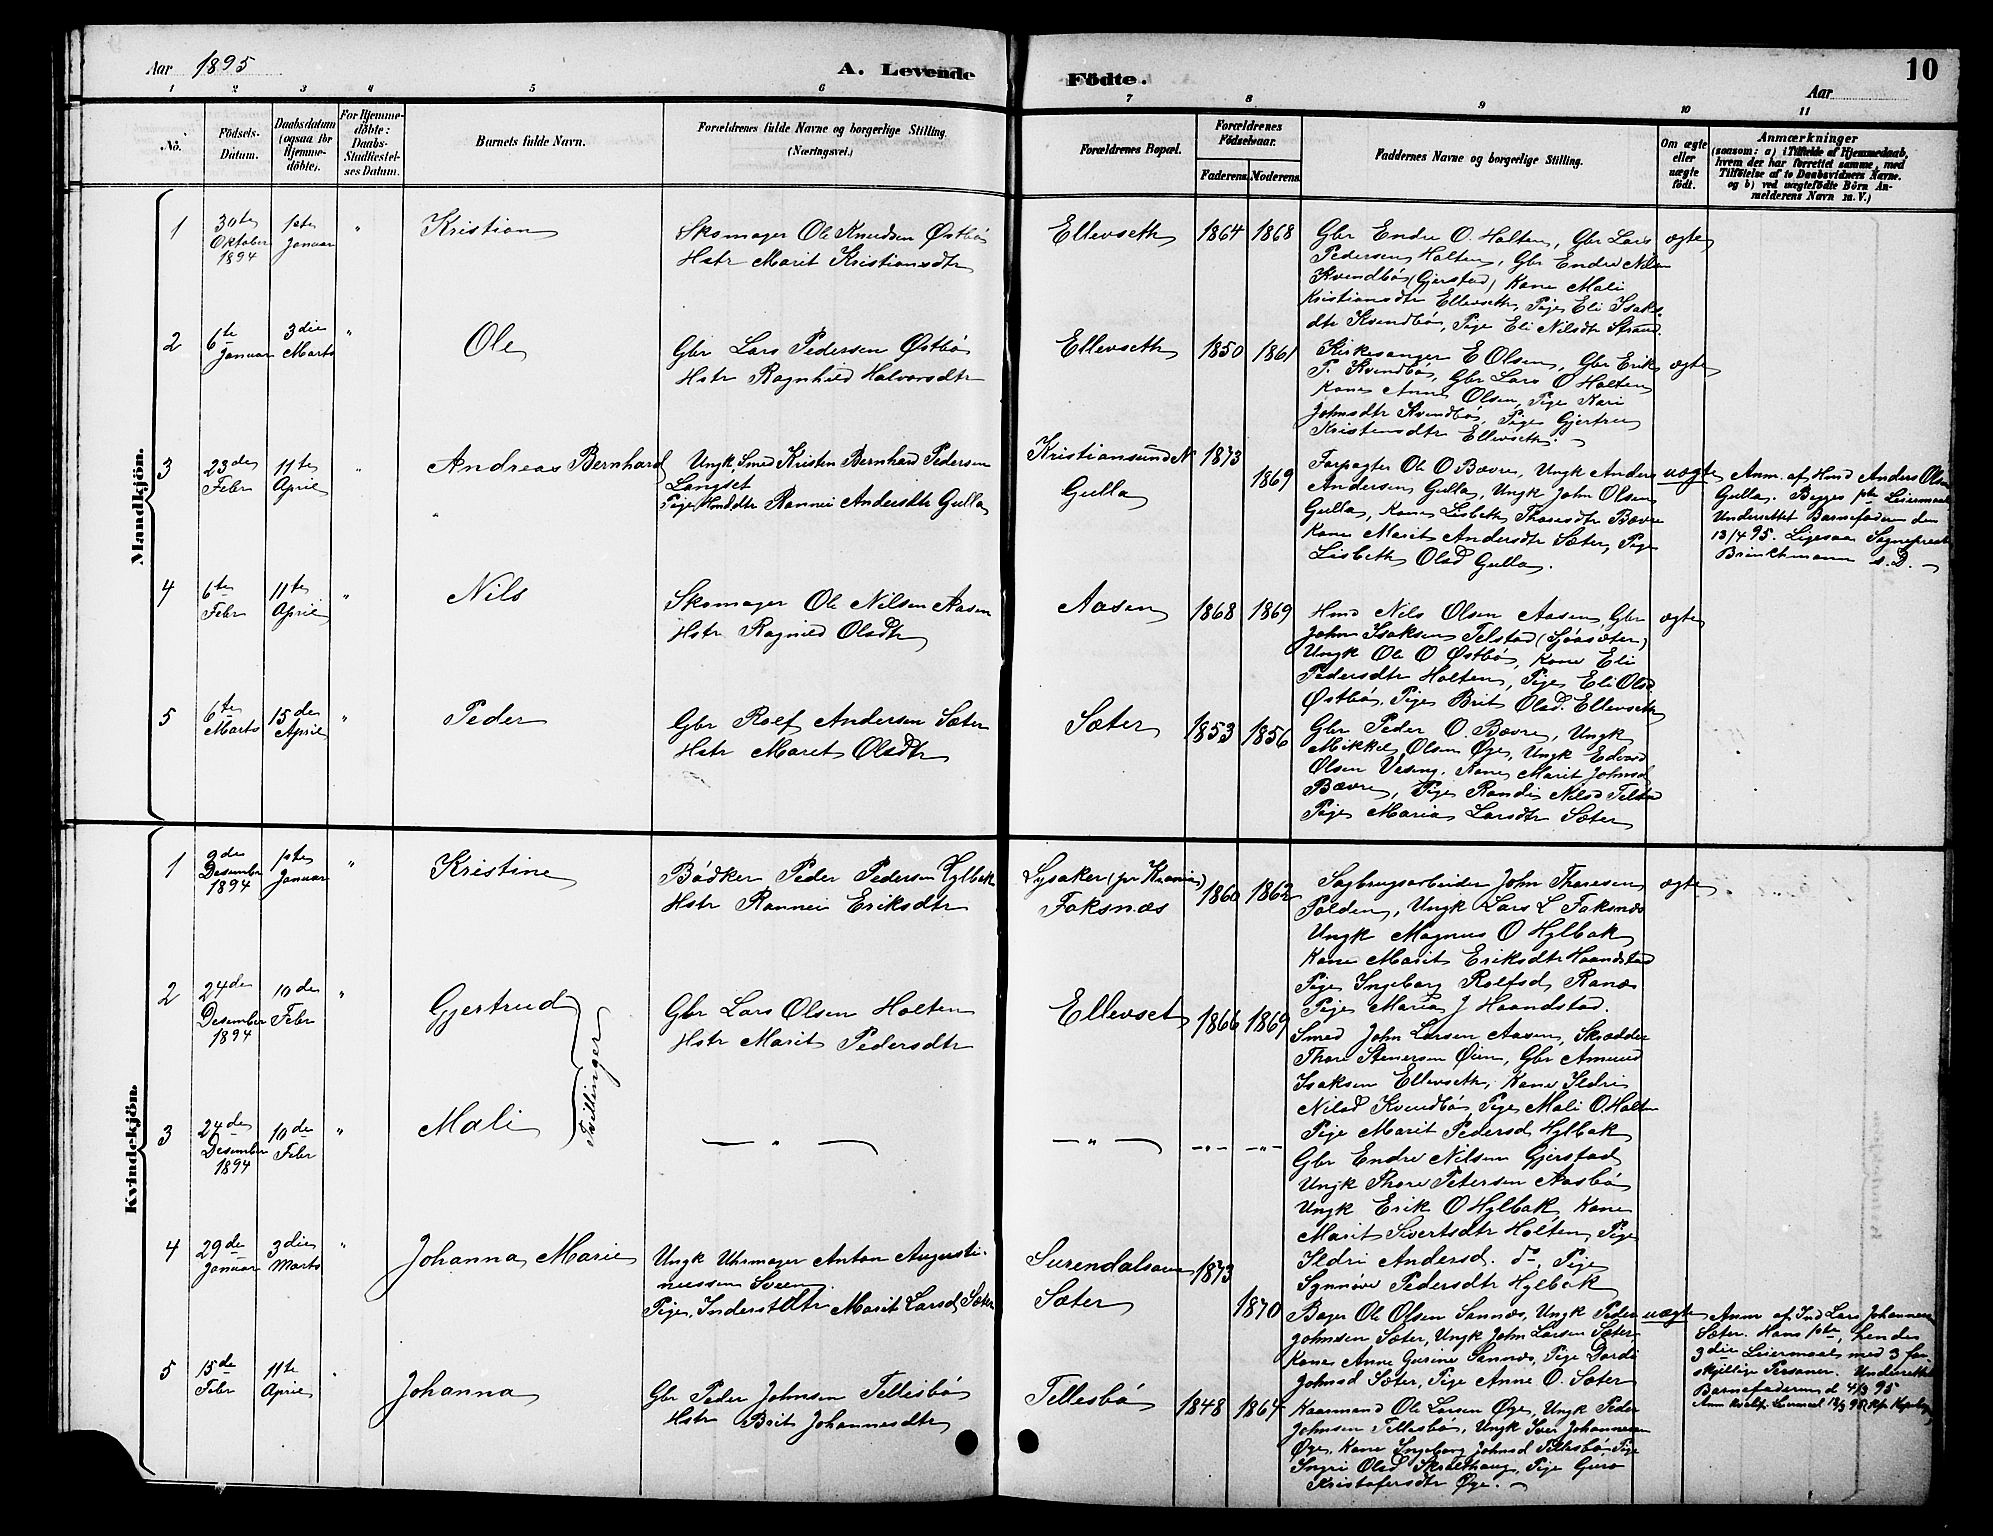 Aar 1895
A. Levende
Födte.
Aar
10
1 2 3 4 5 6 7 8 9 10 11
No.
Födsels-
Datum.
Daabsdatum
(ogsaa for
Hjemme-
döbte).
For Hjemme-
döbte:
Daabs-
Stadfæstel-
ses Datum.
Barnets fulde Navn.
Forældrenes fulde Navne og borgerlige Stilling.
(Næringsvei.)
Forældrenes Bopæl.
Forældrenes
Födselsaar.
Faderens.
Moderens.
Faddernes Navne og borgerlige Stilling.
Om ægte
eller
uægte
födt.
Anmærkninger
(saasom: a) i Tilfælde af Hjemmedaab,
hvem der har forrettet samme, med
Tilföielse af to Daabsvidners Navne,
og b) ved uægtefödte Börn An-
melderens Navn m. V.)
Mandkjön.
1
30te
Oktober
1894
1ste
Januar
"
Kristian
Skomager Ole Knudsen Østbö
Hstr Marit Kristiansdtr
Ellevseth
1864
1868
Gbr Endre O. Holten, Gbr Lars
Pedersen Holten, Gbr Endre Nilsen
Kvendbö (Gjerstad) Kone Mali
Kristiansdtr Ellevseth, Pige Eli Isaks
dtr Kvendbö, Pige Eli Nilsdtr Strand.
ægte
2
6te
Januar
3die
Marts
"
Ole
Gbr Lars Pedersen Østbö
Hstr Ragnhild Halvorsdtr
Ellevseth
1850
1861
Kirkesanger E Olsen, Gbr Erik
P. Kvendbö, Gbr Lars O Holten
Kone Anne Olsen, Pige Kari
Johnsdtr Kvendbö, Pige Gjertru
Kristensdtr Ellevseth.
ægte
3
23de
Febr
11te
April
"
Andreas Bernhard
Ungk, Smed Kristen Bernhard Pedersen
Langset
Pige, Hmdtr Rannei Andersdtr Gulla
Kristiansund N
Gulla
1873
1869
Forpagter Ole O Bævre, Ungk Anders
Andersen Gulla, Ungk John Olsen
Gulla, Kone Lisbeth Thoresdtr Bævre
Kone Marit Andersdtr Sæter, Pige
Lisbeth Olsd Gulla.
uægte
Anm. af Hmd Anders Olsen
Gulla. Begges 1ste Leiermaal
Underrettet Barnefaderen den
13/4 95. Ligesaa Sogneprest
Brinchmann s. D.
4
6te
Febr
11te
April
"
Nils
Skomager Ole Nilsen Aasen
Hstr Ragnild Olsdtr
Aasen
1868
1869
Hmd Nils Olsen Aasen, Gbr
John Isaksen Telstad (Sjöasæter)
Ungk Ole O Østbö, Kone Eli
Pedersdtr Holten, Pige Eli Olsd
Østbö, Pige Brit Olsd. Ellevseth
ægte
5
6te
Marts
15de
April
"
Peder
Gbr Rolf Andersen Sæter
Hstr Marit Olsdtr
Sæter
1853
1856
Gbr Peder O. Bævre, Ungk
Mikkel Olsen Øye, Ungk Edvard
Olsen Væsing, Kone Marit Johnsd
Bævre, Pige Randi Nilsd Telstad
Pige Maria Larsdtr Sæter
Kvindekjön.
1
Desember
1894
1ste
Januar
"
Kristine
Bödker Peder Pedersen Hylbak
Hstr Rannei Eriksdtr
Lysaker (pr Krania)
Faksnæs
1860
1862
Sagbrugsarbeider John Thoresen
Polden, Ungk Lars L Faksnæs
Ungk Magnus O Hylbak
Kone Marit Eriksdtr Haandstad
Pige Ingeborg Rolfsd Ranæs
Pige Maria J Haandstad.
ægte
2
24de
Desember
1894
10de
Febr
"
Gjertrud
Tvillinger
Gbr Lars Olsen Holten
Hstr Marit Pedersdtr
Ellevset
1866
1869
Smed John Larsen Aasen, Skrædder
Thore Stenersen Øien, Gbr Amund
Isaksen Ellevseth, Kone Ildri
Nilsd Kvendbö, Pige Mali O. Holten
Pige Marit Pedersd Hylbak
3
24de
Desember
1894
10de
Febr
"
Mali
— " —
— " —
— " —
— " —
Gbr Endre Nilsen Gjerstad
Ungk Thore Petersen Aasbö
Ungk Erik O Hylbak, Kone
Marit Sivertsdtr Holten, Pige
Ildri Andersd. do, Pige
Synnöve Pedersdtr Hylbak
4
29de
Januar
3die
Marts
"
Johanna Marie
Ungk Uhrmager Anton Augusti-
nussen Sveen
Pige, Inderstdtr Marit Larsd Sæter
Surendalsøren
Sæter
1873
1870
Bager Ole Olsen Sannæs, Ungk Peder
Johnsen Sæter, Ungk John Larsen Sæter
Kone Anne Gurine Sannæs, Pige Dordi
Johnsd Sæter, Pige Anne O. Sæter
uægte
Anm af Ind Lars Johannesen
Sæter. Hans 1ste, hendes
3die Leiermaal med 3 for
skjellige Personer. Underrettet
Barnefaderen d 4/3 95
5
15de
Febr
11te
April
"
Johanna
Gbr Peder Johnsen Tellesbö
Hstr Brit Johannesdtr
Tellesbö
1848
1864
Kaarmand Ole Larsen Øye, Ungk Peder
Johnsen Tellesbö, Ungk Iver Johannesen
Øye, Kone Ingeborg Johnsd Tellesbö, Pige
Ingri Olsd Skralthaug, Pige Guro
Kristofersdtr Øye.